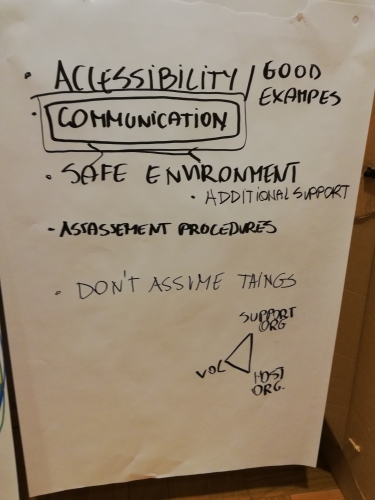 • ACCESSIBILITY / GOOD
EXAMPES
• COMMUNICATION
• SAFE ENVIRONMENT
• ADDITIONAL SUPPORT
• ASTASSEMENT PROCEDURES
• DON'T ASSUME TAINGS
SUPPORT
ORG
VOL
HOST
ORG.